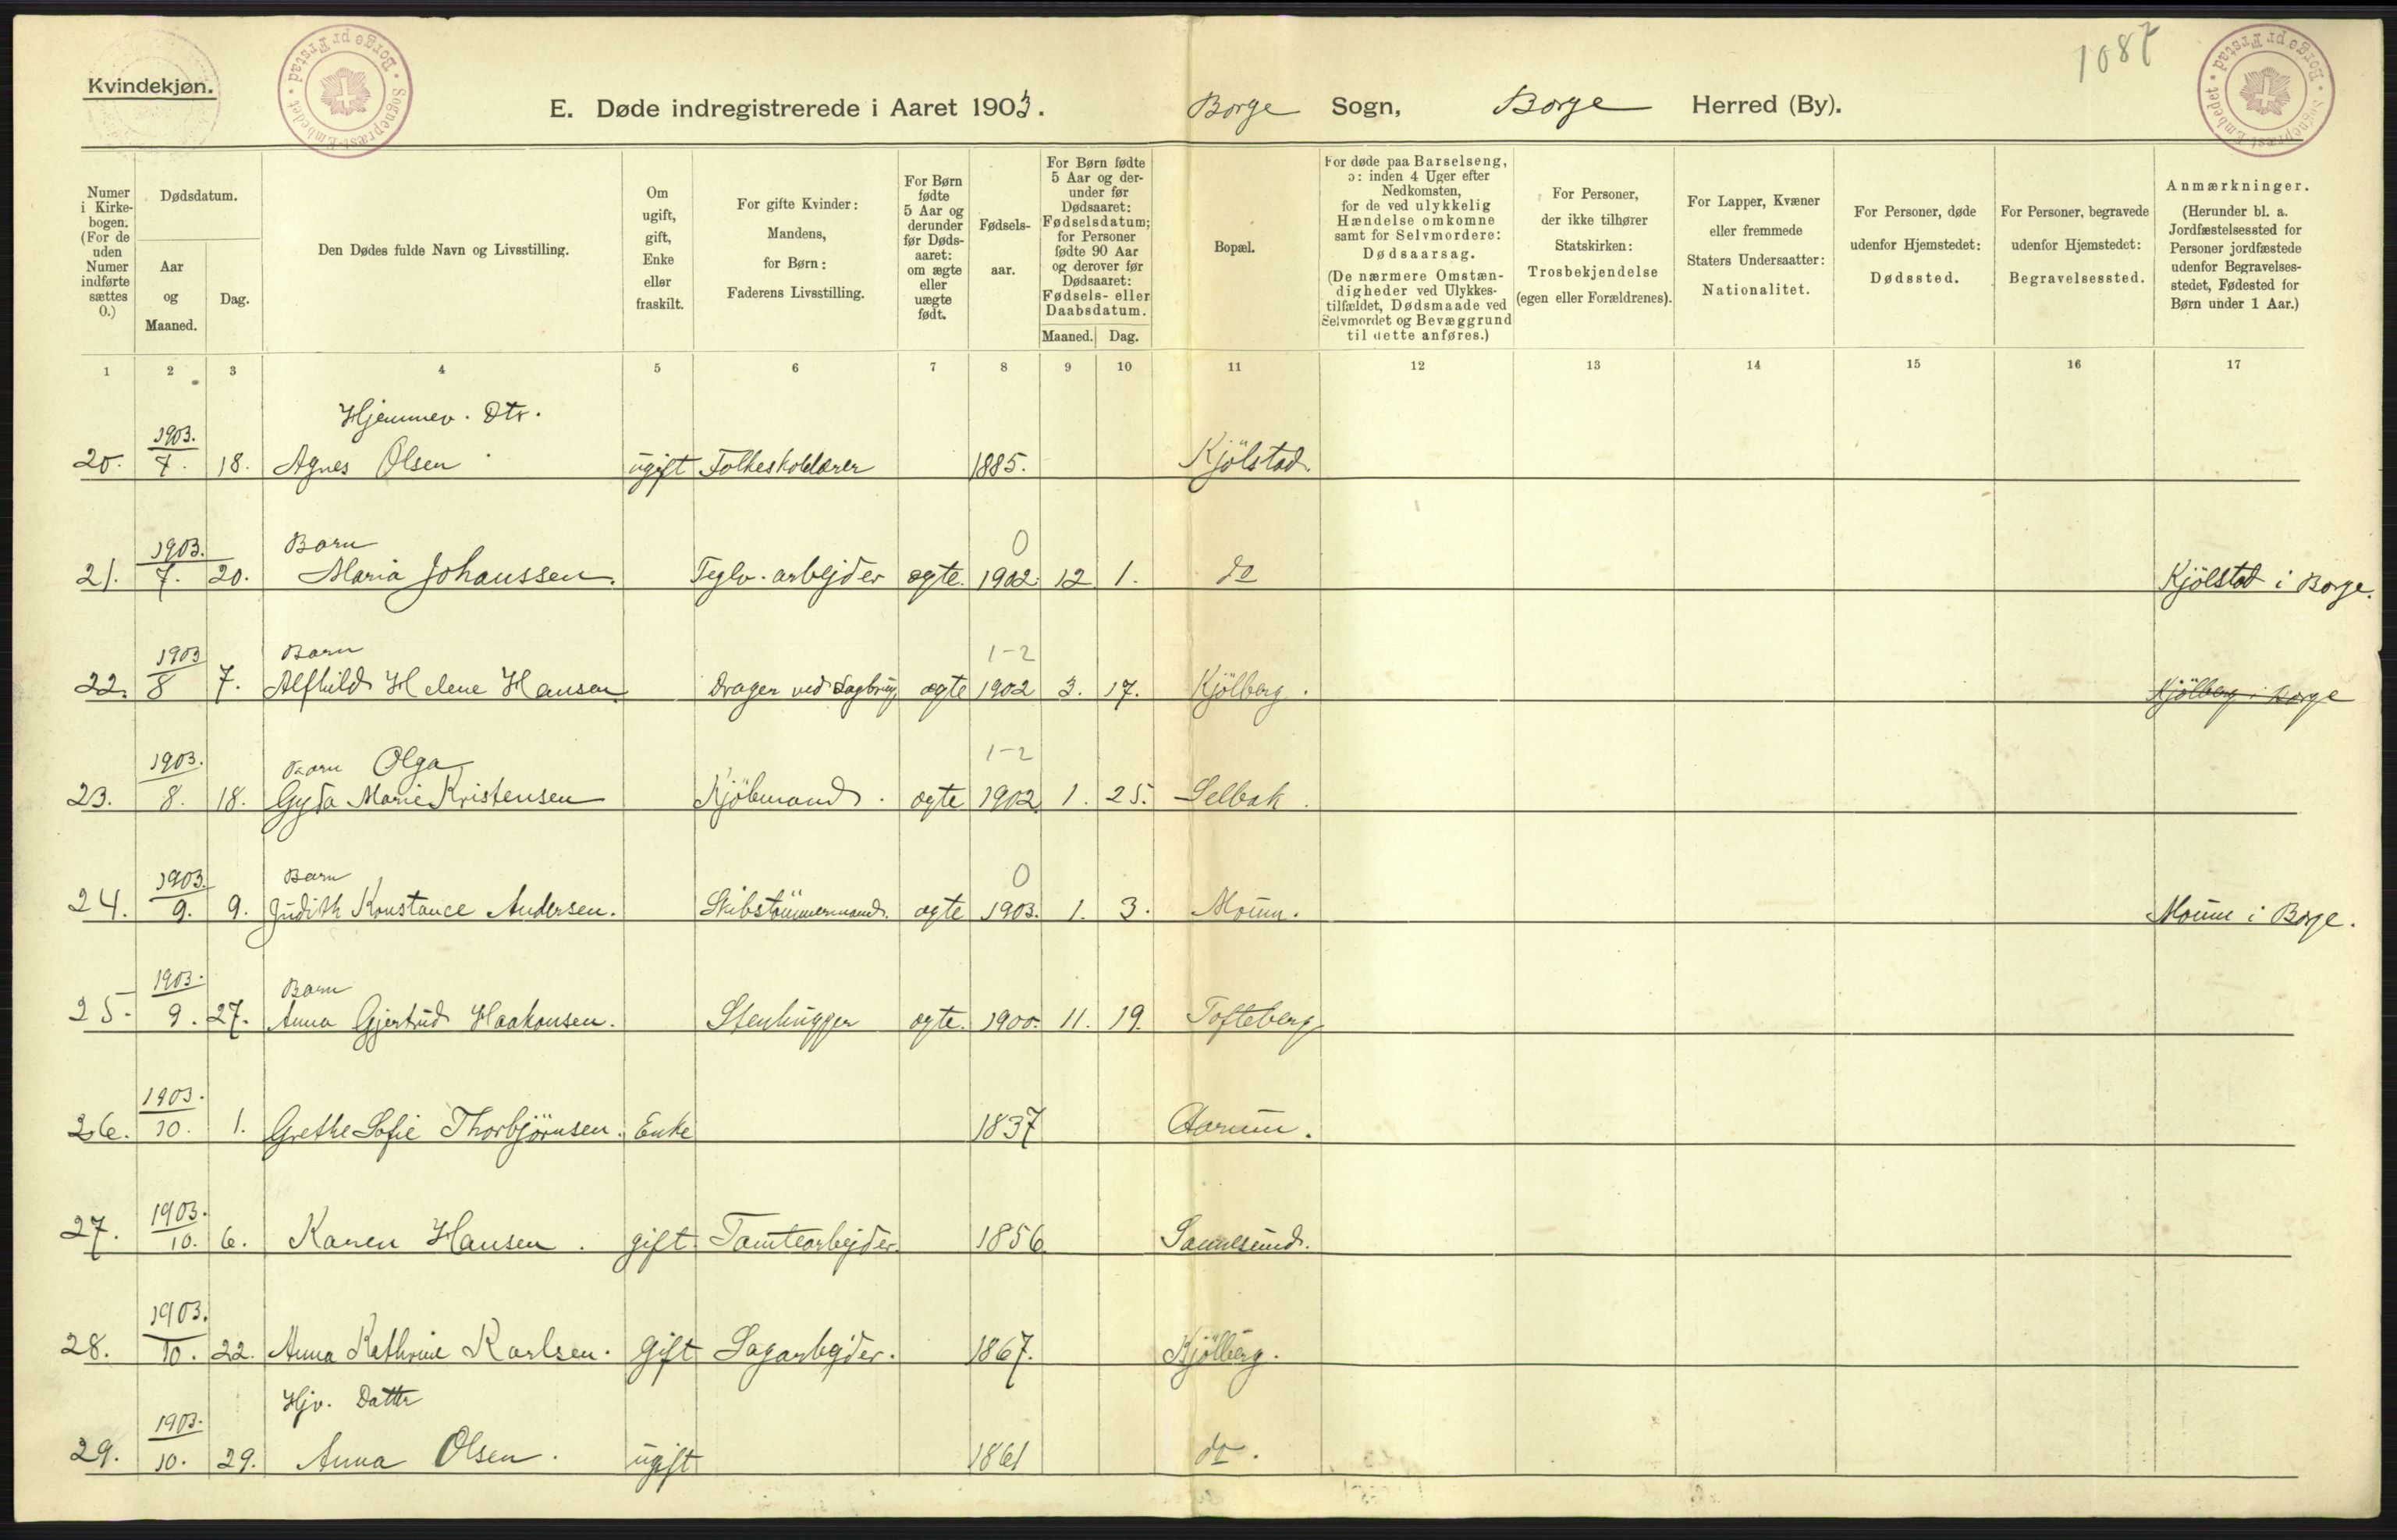 1087
Kvindekjøn.
Sognepræst-Embedet • Borge pr Frstad •
Sognepræst-Embedet • Borge pr Frstad •
E. Døde indregistrerede i Aaret 1903. Borge Sogn, Borge Herred (By).
Numer i Kirkebogen. (For de uden Numer indførte sættes 0.)
Dødsdatum.
Aar og Maaned.
Dag.
Den Dødes fulde Navn og Livsstilling.
Om ugift, gift, Enke eller fraskilt.
For gifte Kvinder: Mandens, for Børn: Faderens Livsstilling.
For Børn fødte 5 Aar og derunder før Dødsaaret: om ægte eller uægte født.
Fødselsaar.
For Børn fødte 5 Aar og derunder før Dødsaaret: Fødselsdatum; for Personer fødte 90 Aar og derover før Dødsaaret: Fødsels- eller Daabsdatum.
Maaned. Dag.
Bopæl.
For døde paa Barselseng, ɔ: inden 4 Uger efter Nedkomsten, for de ved ulykkelig Hændelse omkomne samt for Selvmordere: Dødsaarsag. (De nærmere Omstændigheder ved Ulykkestilfældet, Dødsmaade ved Selvmordet og Bevæggrund til dette anføres.)
For Personer, der ikke tilhører Statskirken: Trosbekjendelse (egen eller Forældrenes).
For Lapper, Kvæner eller fremmede Staters Undersaatter: Nationalitet.
For Personer, døde udenfor Hjemstedet: Dødssted.
For Personer, begravede udenfor Hjemstedet: Begravelsessted.
Anmærkninger. (Herunder bl. a. Jordfæstelsessted for Personer jordfæstede udenfor Begravelsesstedet, Fødested for Børn under 1 Aar.)
1 2 3 4 5 6 7 8 9 10 11 12 13 14 15 16 17
Hjemmev. Dtr.
20. 1903. 7. 18. Agnes Olsen ugift Folkeskolelærer 1885. Kjölstad.
Barn 0
21. 1903. 7. 20. Maria Johanssen. Teglv. arbejder ægte. 1902. 12 1. do Kjölstad i Borge.
Barn 1-2
22. 1903 8 7. Alfhild Helene Hansen Drager ved Sagbrug ægte 1902 3. 17. Kjölberg. Kjölberg i Borge
Barn Olga 1-2
23. 1903. 8. 18. Gyda Marie Kristensen Kjöbmand. ægte 1902 1. 25. Selbak.
Barn 0
24. 1903. 9. 9. Judith Konstance Andersen. Skibstömmermand. ægte 1903. 1. 3. Moum. Moum i Borge.
Barn
25. 1903. 9. 27. Anna Gjertrud Haakonsen. Stenhugger ægte. 1900. 11. 19. Tofteberg
26. 1903. 10. 1. Grethe Sofie Thorbjörnsen. Enke 1837 Aarum.
27. 1903. 10. 6. Karen Hansen. gift. Tomtearbejder. 1856 Sannesund.
28. 1903. 10. 22. Anna Kathrine Karlsen. Gift Sagarbejder. 1867. Kjölberg.
Hjv. Datter
29. 1903. 10. 29. Anna Olsen. ugift 1861 do.